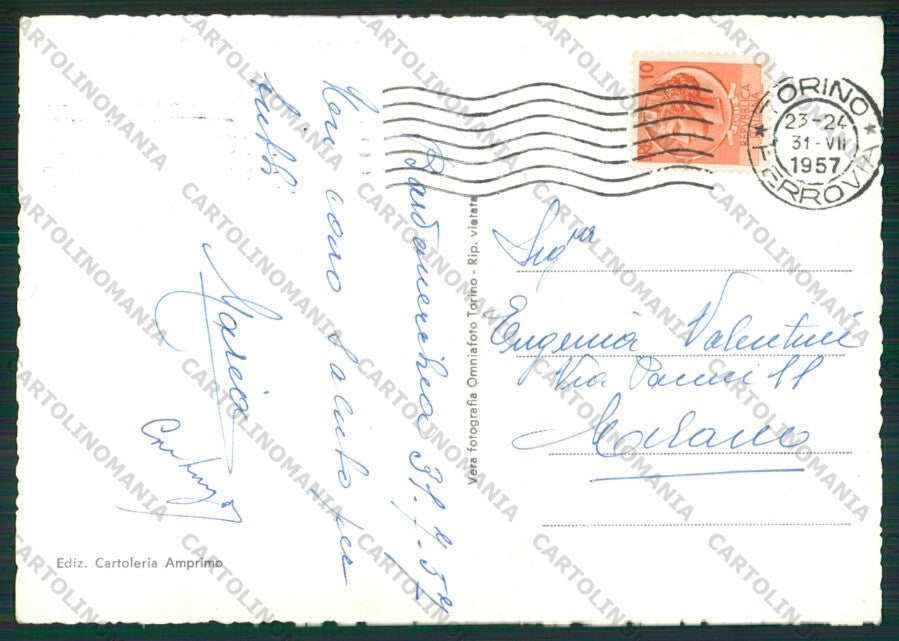 10
REPVBBLICA
TORINO
23-24
31-VII
1957
FERROVIA
Bardonecchia 31.7.57
Un caro saluto per
tutti
Maria
Vera fotografia Omniafoto Torino - Rip. vietata
Sig.na
Eugenia Valentini
Via 11
Milano
Ediz. Cartoleria Amprimo
CARTOLINOMANIA